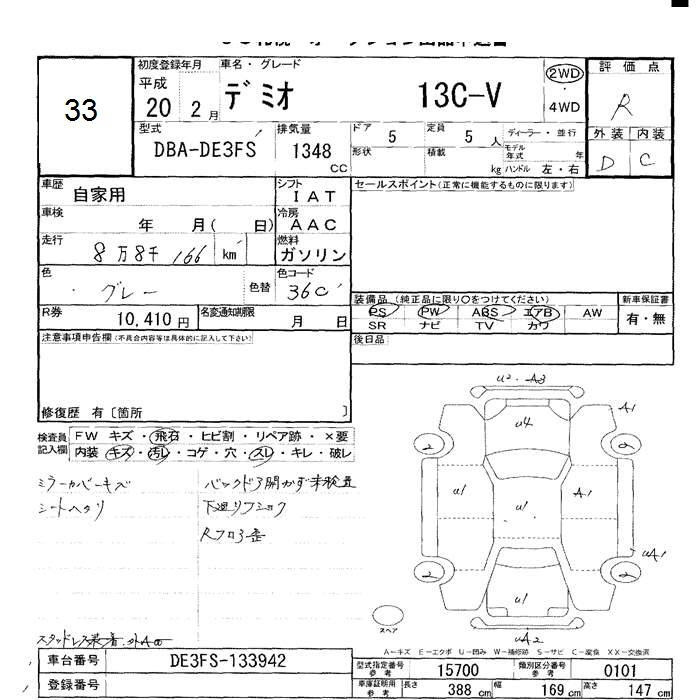 33
初度登録年月
平成
20 2月
車名・グレード
デミオ 13C-V
2WD
・
4WD
評価点
R
外装 内装
D C
型式
DBA-DE3FS
排気量
1348
CC
ドア 5
形状
定員 5 人
積載 kg
ディーラー・並行
モデル年式 年
ハンドル 左・右
車歴
自家用
シフト
IAT
車検
年 月( 日)
冷房
AAC
走行
8万8千166 km
燃料
ガソリン
色
グレー
色替
色コード
36C
R券
10,410円
名変通知期限
月 日
セールスポイント(正常に機能するものに限ります)
装備品(純正品に限り○をつけてください)
PS PW ABS エアB AW
SR ナビ TV カワ
新車保証書
有・無
後日品
注意事項申告欄(不具合内容等は具体的に記入して下さい)
修復歴 有〔箇所 〕
検査員記入欄
FW キズ・飛石・ヒビ割・リペア跡・×要
内装 キズ・汚レ・コゲ・穴・スレ・キレ・破レ
ミラーカバーキズ
シートヘタリ
バックドア開かず未検査
u2・A3
u4
A1
2
2
u1
u1
A1
uA1
2
2
u1
uA2
スペア
A-キズ E-エクボ U-凹み W-補修跡 S-サビ C-腐食 XX-交換済
車台番号
DE3FS-133942
登録番号
型式指定番号
参考
15700
類別区分番号
参考
0101
車庫証明用
参考
長さ 388 cm
幅 169 cm
高さ 147 cm